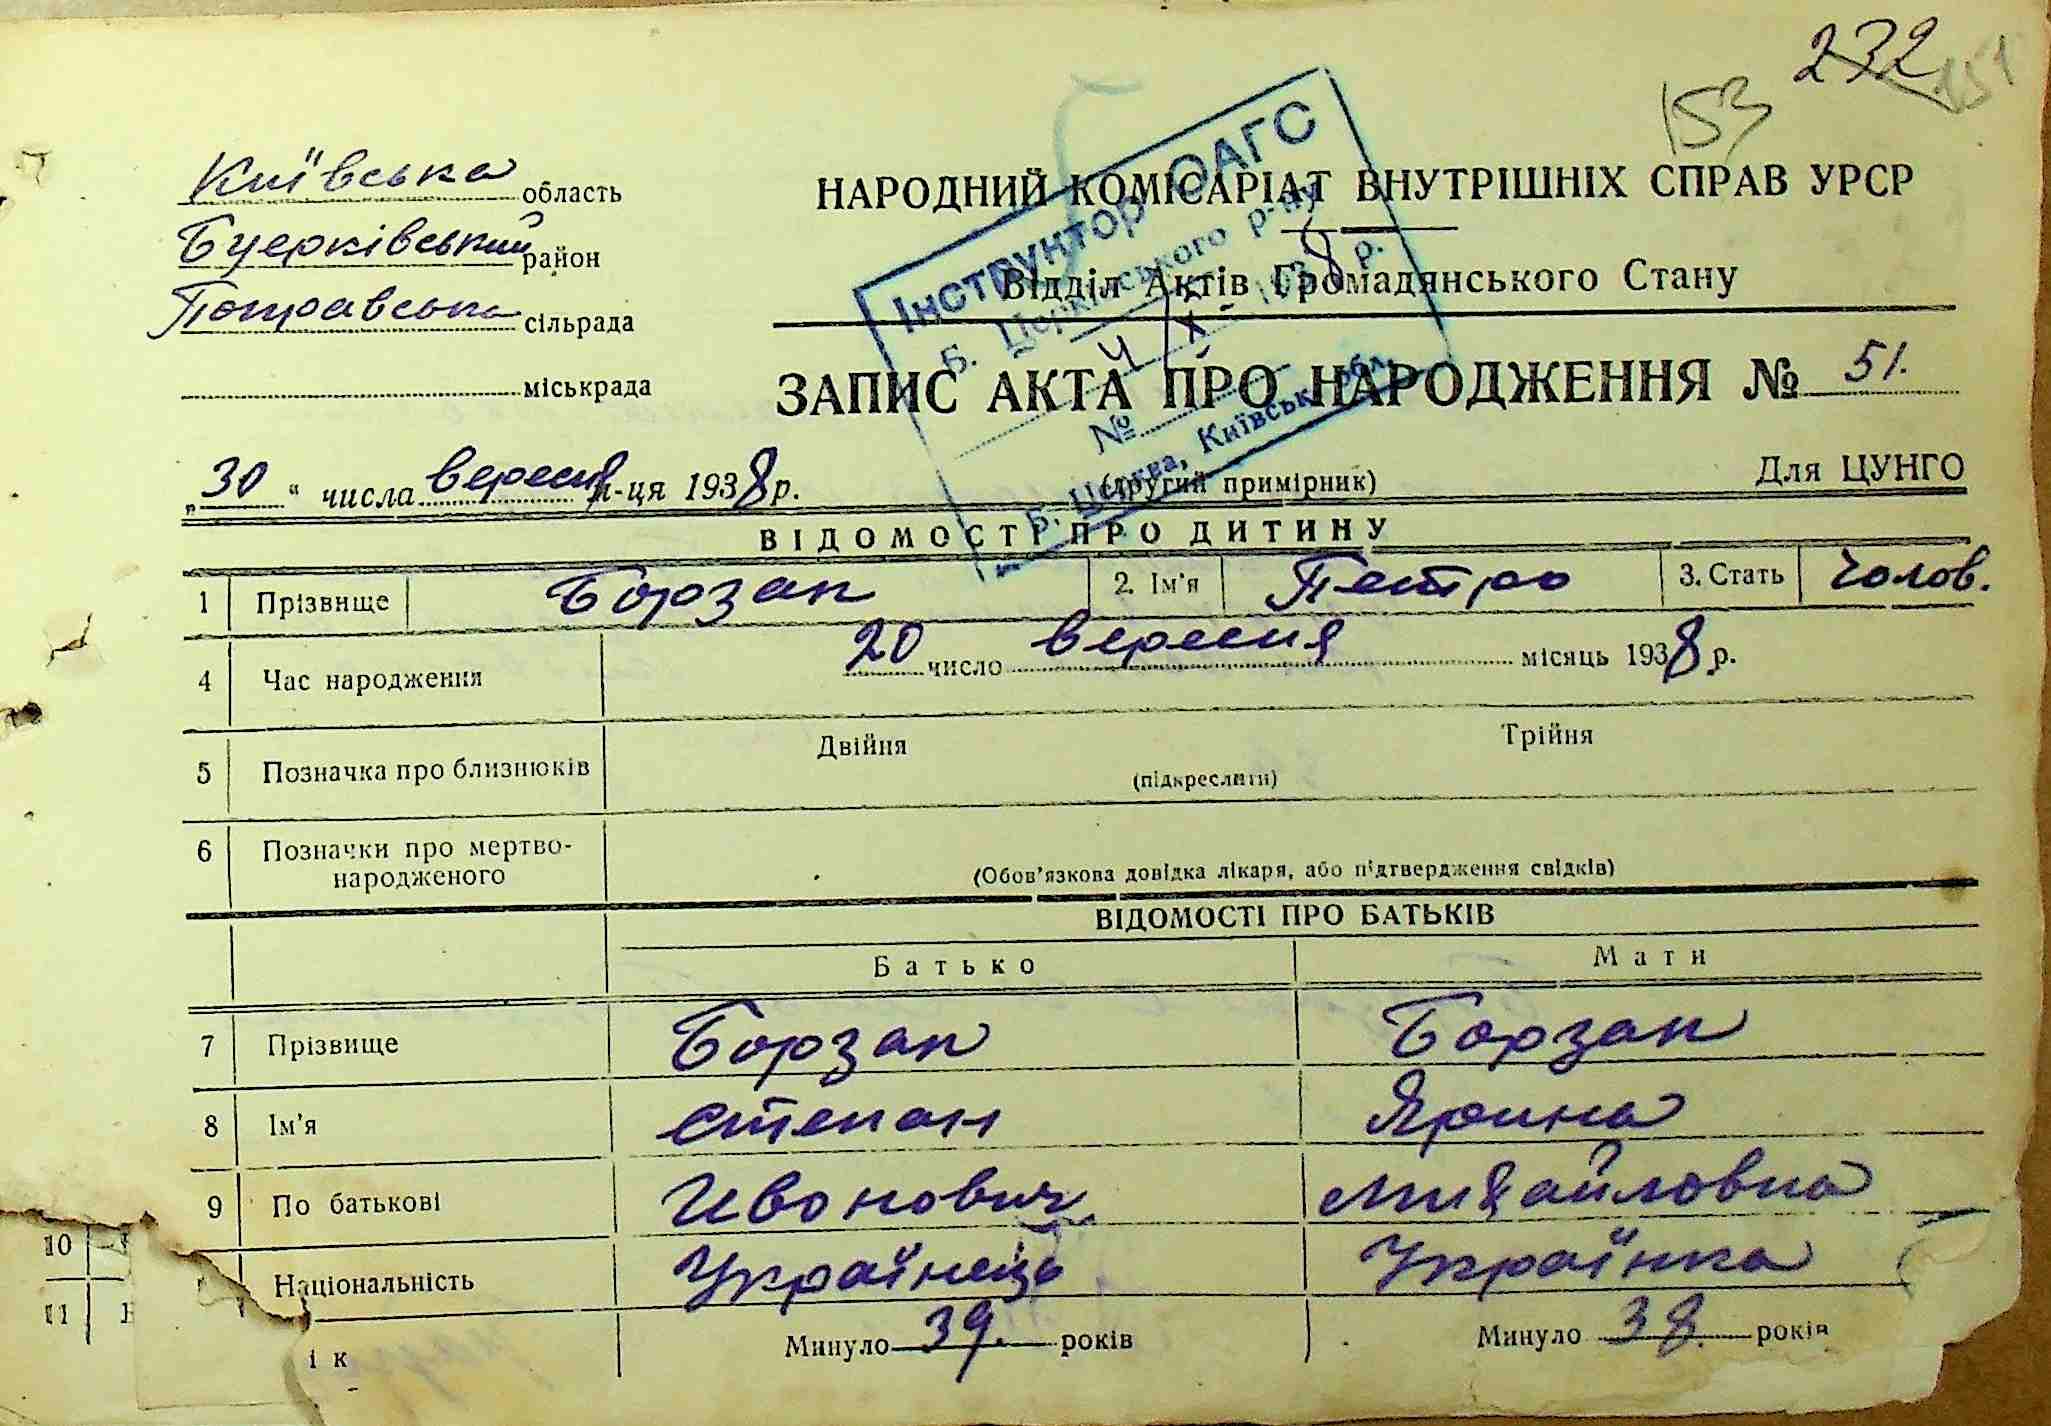 232
153 151
Київська область
НАРОДНИЙ КОМІСАРІАТ ВНУТРІШНІХ СПРАВ УРСР
Буерківський район
Відділ Актів Громадянського Стану
сільрада
міськрада
ЗАПИС АКТА ПРО НАРОДЖЕННЯ № 51.
Інструнтор ОАГС
Б. Церківського р-ну
4 X 1938 р.
№
Б. Церква, Київськ. обл.
„30“ числа вересня м-ця 1938 р.
(другий примірник)
Для ЦУНГО
ВІДОМОСТІ ПРО ДИТИНУ
1 Прізвище Борзак 2. Ім'я Петро 3. Стать Чолов.
4 Час народження 20 число вересня місяць 1938 р.
5 Позначка про близнюків Двійня Трійня
(підкреслити)
6 Позначки про мертво-
народженого
(Обов'язкова довідка лікаря, або підтвердження свідків)
ВІДОМОСТІ ПРО БАТЬКІВ
Батько Мати
7 Прізвище Борзак Борзак
8 Ім'я Степан Ярина
9 По батькові Ивонович Михайловна
10 Національність Українець Українка
11 і к Минуло 39. років Минуло 38. років